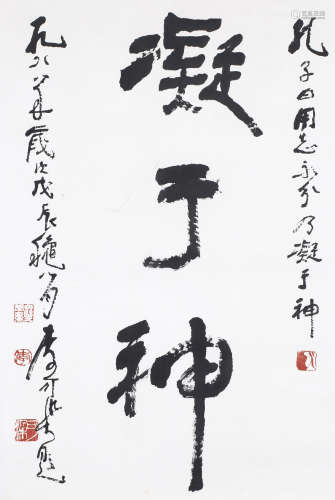 孔子曰用志不分乃凝于神
凝于神
一九八八年歲次戊辰龝八月李可染書題